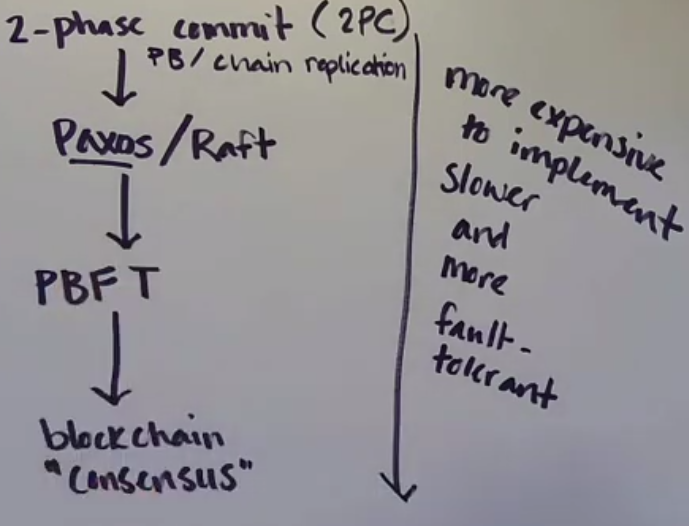 2-phase commit (2PC)
PB/chain replication
Paxos/Raft
PBFT
blockchain
"consensus"
more expensive
to implement
slower
and
more
fault-
tolerant